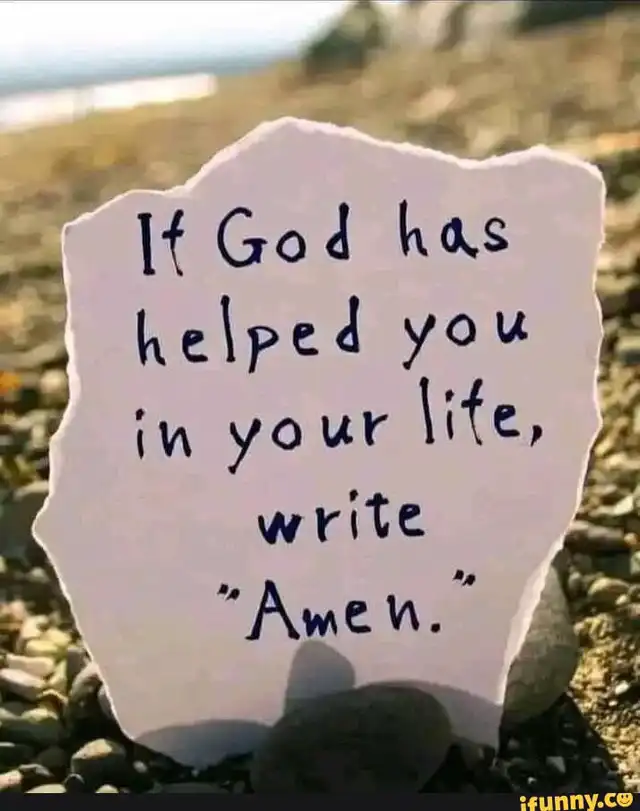 If God has
helped you
in your life,
write
"Amen."
ifunny.co